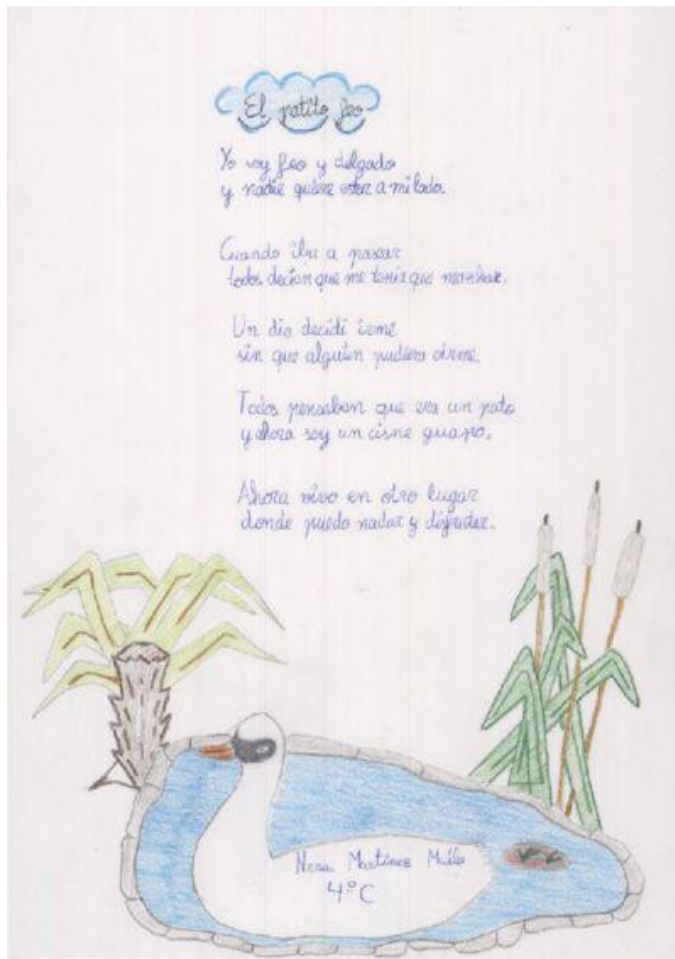 El patito feo
Yo soy feo y delgado
y nadie quiere estar a mi lado.
Cuando iba a pasear
todos decían que me tenía que marchar.
Un día decidí irme
sin que alguien pudiera oirme.
Todos pensaban que era un pato
y ahora soy un cisne guapo.
Ahora vivo en otro lugar
donde puedo nadar y disfrutar.
Martínez
4º C